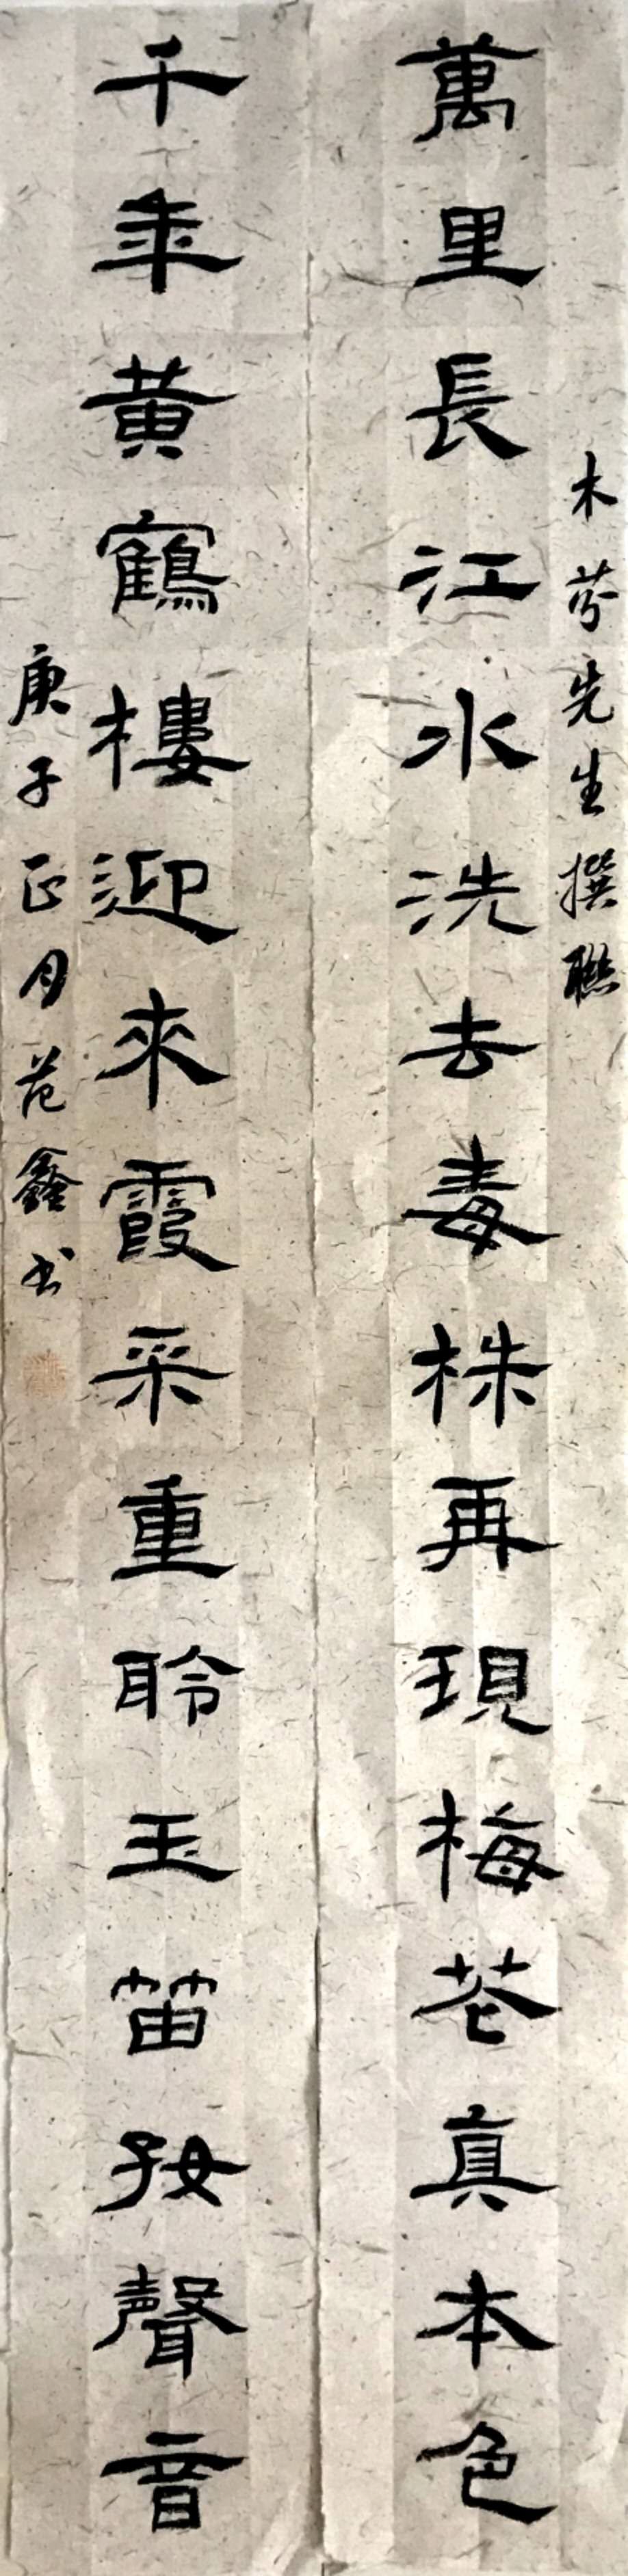 木芬先生撰聯
萬里長江水洗去毒株再現梅花真本色
千年黃鶴樓迎來霞采重聆玉笛好聲音
庚子正月范鑫书